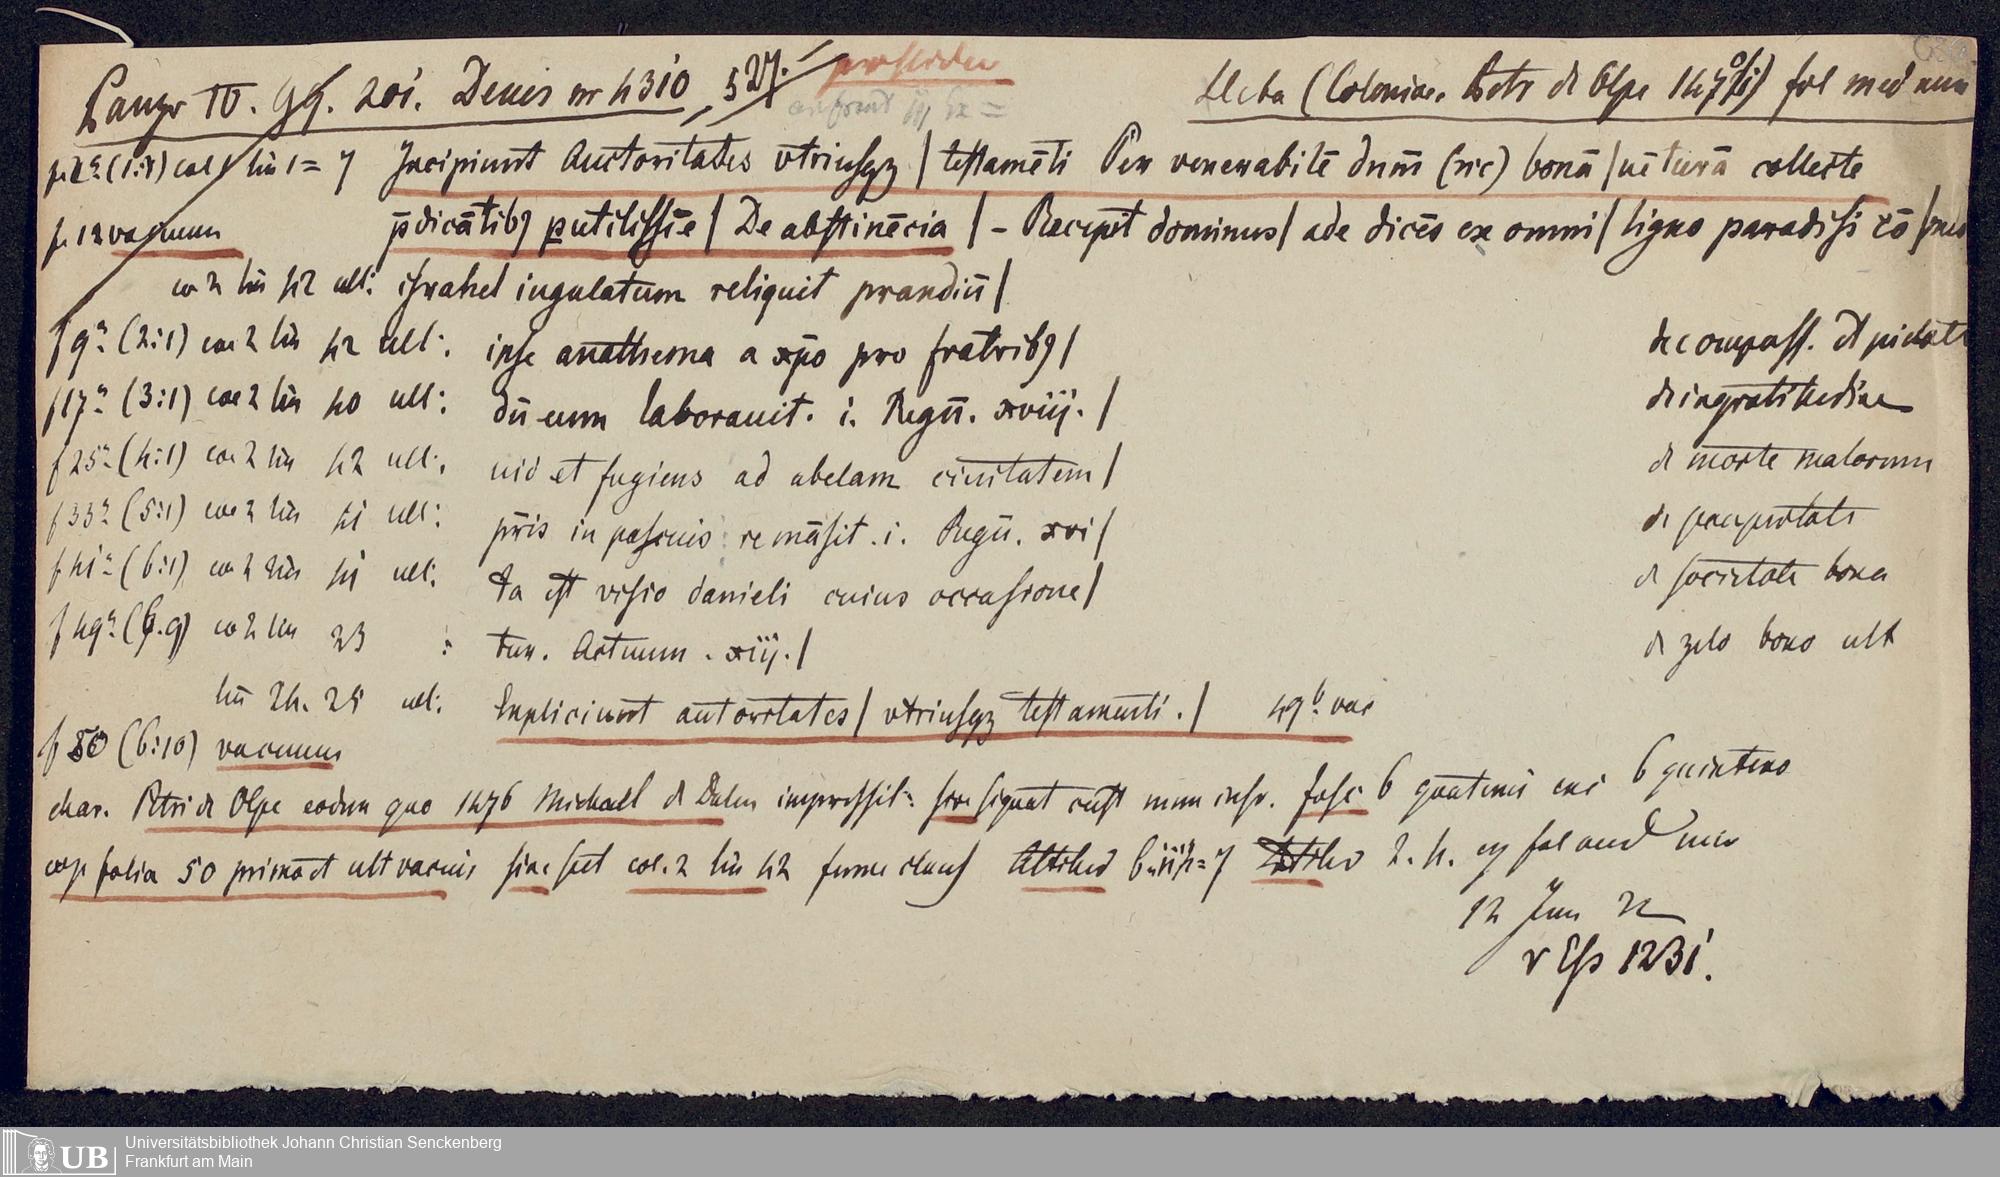 Panzer IV. 99. 201. Denis nr 4310, 527.
(Coloniae. Petr de Olpe 147 ) fol med
f. 2a (1:1) col 1 lin 1=7 Incipiunt Auctoritates vtriusqz | testamēti Per venerabilē dnm̄ (sic) bonā | uēturā collecte
f. 1 vacuum p̄dicātibꝫ putilissīe | De abstinēcia | - Precepit dominus | ade dicēs ex omni | ligno paradisi cō |
co 2 lin 42 ult: israhel iugulatum reliquit prandiū |
f 9a (2:1) col 2 lin 42 ult: ipse anathema a xp̄o pro fratribꝫ | de compass. et pietate
f 17a (3:1) col 2 lin 40 ult: dū eum laborauit. i. Regū. xviij. | de ingratitudine
f 25a (4:1) col 2 lin 42 ult: uid et fugiens ad abelam ciuitatem | de morte malorum
f 33a (5:1) col 2 lin 41 ult: pr̄is in pascuis remāsit. i. Regū. xvi | de paupertate
f 41a (6:1) co 2 lin 41 ult: ta est visio danieli cuius occasione | de societate bona
f 49a (6.9) co 2 lin 23 : tur. Actuum. xiij. | de zelo bono ult
lin 24. 25 ult: Expliciunt autoritates | vtriusqz testamenti. | 49b vac
f 50 (6:10) vacuum
char. Petri de Olpe eodem quo 1476 Michael de Dalen impressit: signat cust num insr. fasc 6 quaterni 6 quinterno
folia 50 prima et ult vacuis sine col. 2 lin 42 2. 4. fol
12 Jun 22
v Ess 1231.
UB Universitätsbibliothek Johann Christian Senckenberg
Frankfurt am Main